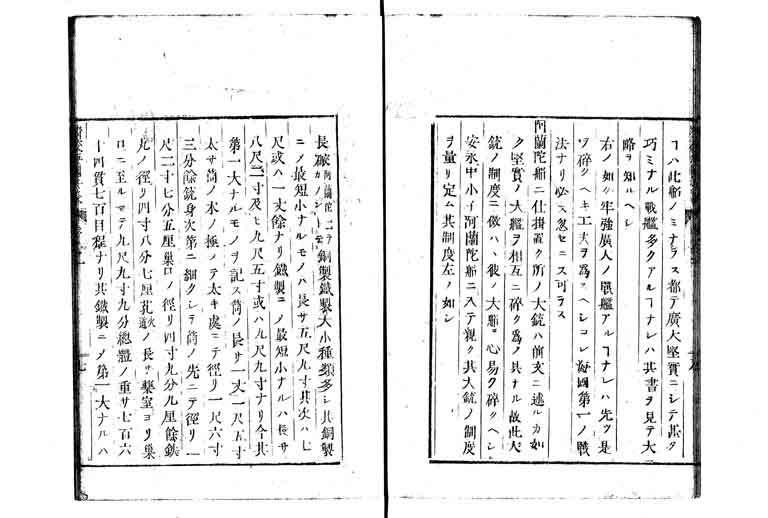 ヿハ此船ノミナラス都テ廣大堅實ニシテ甚タ
巧ミナル戰艦多クアルヿナレハ其書ヲ見テ大
略ヲ知ルヘシ
右ノ如ク牢強廣人ノ戰艦アルヿナレハ先ツ是
ヲ碎クヘキ工夫ヲ為スヘシコレ海國第一ノ戰
法ナリ必ス忽セニス可ラス
阿蘭陀船ニ仕掛置ク所ノ大銃ハ前文ニ述ルカ如
ク堅實ノ大艦ヲ相互ニ碎ク為ノ具ナル故此大
銃ノ制度ニ倣ハヽ彼ノ大船モ心易ク碎クヘシ
安永中小子阿蘭陀船ニ入テ親ク其大銃ノ制度
ヲ量リ定ム其制度左ノ如シ
長砲阿蘭陀ニテカノント云銅製鐵製大小種類多シ其銅製
ニノ最短小ナルモノハ長サ五尺九寸其次ハ七
尺或ハ一丈餘ナリ鐵製ニノ最短小ナルハ長サ
八尺二寸及ヒ九尺五寸或ハ九尺九寸ナリ今其
第一大ナルモノヲ記ス筒ノ長サ一丈一尺五寸
太サ筒ノ本ノ極メテ太キ處ニテ徑リ一尺六寸
三分餘銃身次第ニ細クシテ筒ノ先ニテ徑リ一
尺二寸七分五厘巢口ノ徑リ四寸九分九厘餘鉄
丸ノ徑リ四寸八分七厘孔ノ長サ藥室ヨリ巢
口ニ至ルマテ九尺九寸九分總體ノ重サ七百六
十四貫七百目程ナリ其鐵製ニノ第一大ナルハ